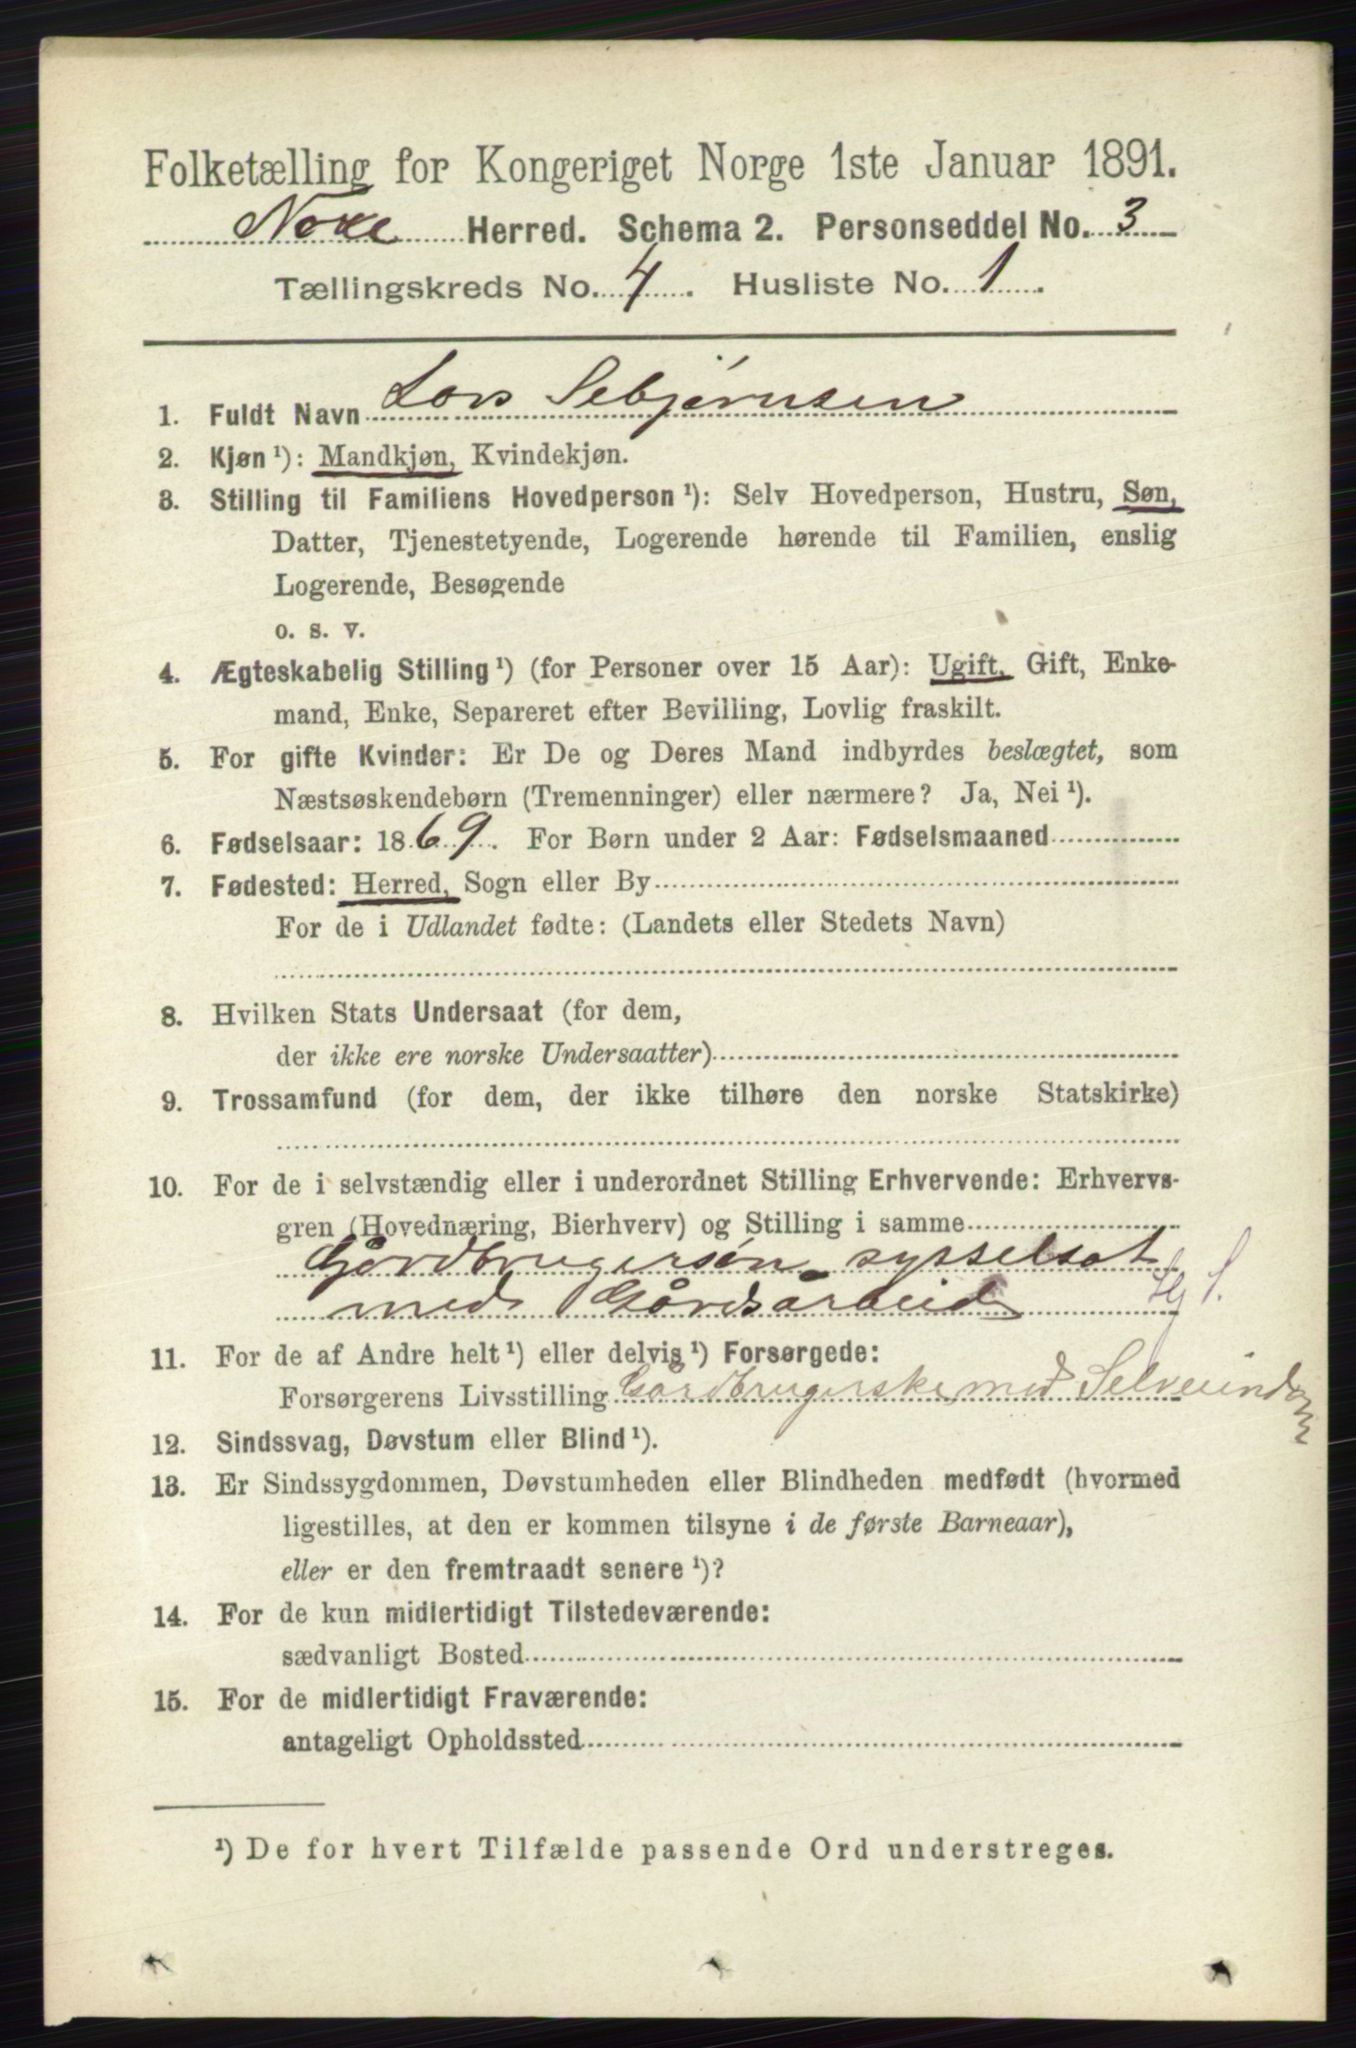 Folketælling for Kongeriget Norge 1ste Januar 1891.
Nore Herred. Schema 2. Personseddel No. 3
Tællingskreds No. 4. Husliste No. 1.
1. Fuldt Navn Lars Sebjørnsen
2. Kjøn ¹): Mandkjøn, Kvindekjøn.
3. Stilling til Familiens Hovedperson ¹): Selv Hovedperson, Hustru, Søn,
Datter, Tjenestetyende, Logerende hørende til Familien, enslig
Logerende, Besøgende
o. s. v.
4. Ægteskabelig Stilling ¹) (for Personer over 15 Aar): Ugift, Gift, Enke-
mand, Enke, Separeret efter Bevilling, Lovlig fraskilt.
5. For gifte Kvinder: Er De og Deres Mand indbyrdes beslægtet, som
Næstsøskendebørn (Tremenninger) eller nærmere? Ja, Nei ¹).
6. Fødselsaar: 1869. For Børn under 2 Aar: Fødselsmaaned
7. Fødested: Herred, Sogn eller By
For de i Udlandet fødte: (Landets eller Stedets Navn)
8. Hvilken Stats Undersaat (for dem,
der ikke ere norske Undersaatter)
9. Trossamfund (for dem, der ikke tilhøre den norske Statskirke)
10. For de i selvstændig eller i underordnet Stilling Erhvervende: Erhvervs-
gren (Hovednæring, Bierhverv) og Stilling i samme
Gårdbrugersøn sysselsat
med Gårdsarbeid
11. For de af Andre helt ¹) eller delvis ¹) Forsørgede:
Forsørgerens Livsstilling Gårdbrugerske med Selveiendom
12. Sindssvag, Døvstum eller Blind ¹).
13. Er Sindssygdommen, Døvstumheden eller Blindheden medfødt (hvormed
ligestilles, at den er kommen tilsyne i de første Barneaar),
eller er den fremtraadt senere ¹)?
14. For de kun midlertidigt Tilstedeværende:
sædvanligt Bosted
15. For de midlertidigt Fraværende:
antageligt Opholdssted
¹) De for hvert Tilfælde passende Ord understreges.